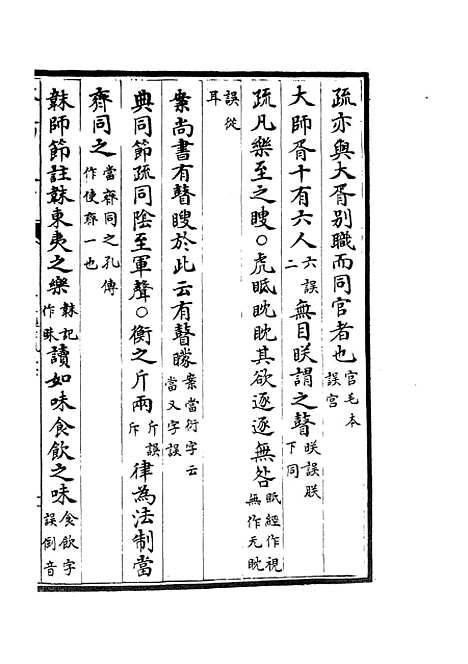 疏亦與大胥别職而同官者也官毛本誤宫
大師胥十有六人六誤二無目眹謂之瞽眹誤朕下同
疏凡樂至之瞍○虎眡眈眈其欲逐逐無咎眡經作視無作无眈
誤從耳
案尚書有瞽瞍於此云有瞽矇案當衍字云當又字誤
典同節疏同陰至軍聲○衡之斤兩斤誤斥律為法制當
齊同之當齊同之孔傳作使齊一也
韎師節註韎東夷之樂韎記作昧讀如味食飲之味食飲字誤倒音